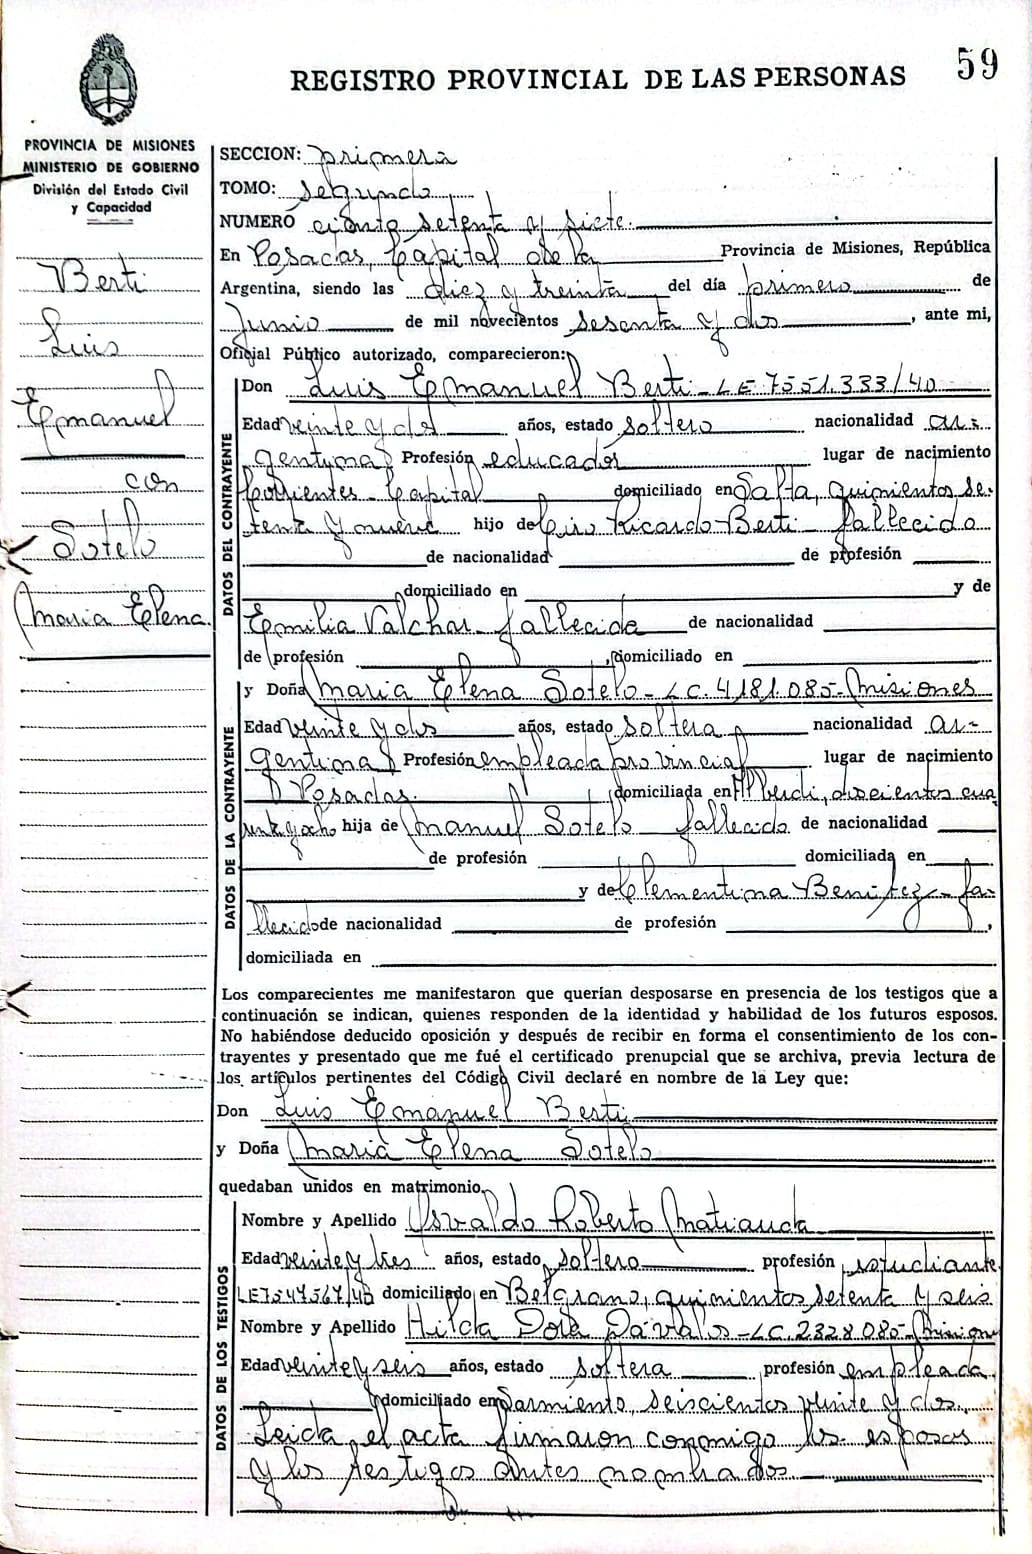 59
REGISTRO PROVINCIAL DE LAS PERSONAS
PROVINCIA DE MISIONES
MINISTERIO DE GOBIERNO
División del Estado Civil
y Capacidad
Berti
Luis
Emanuel
con
Sotelo
Maria Elena.
SECCION: primera
TOMO: segundo
NUMERO ciento setenta y siete.
En Posadas, Capital de la Provincia de Misiones, República
Argentina, siendo las diez y treinta del día primero de
Junio de mil novecientos sesenta y dos, ante mi,
Oficial Público autorizado, comparecieron:
DATOS DEL CONTRAYENTE
Don Luis Emanuel Berti - LE 7551.333/40
Edad veinte y dos años, estado soltero nacionalidad ar-
gentina Profesión educador lugar de nacimiento
Corrientes - Capital domiciliado en Salta, quinientos se-
tenta y nueve hijo de Ciro Ricardo Berti - fallecido
de nacionalidad de profesión
domiciliado en y de
Emilia Valchar fallecida de nacionalidad
de profesión , domiciliado en
DATOS DE LA CONTRAYENTE
y Doña Maria Elena Sotelo - LC. 4.181.085 - Misiones
Edad veinte y dos años, estado soltera nacionalidad ar-
gentina Profesión empleada provincial lugar de nacimiento
Posadas. domiciliada en Alberdi, doscientos cua
renta y ocho hija de Manuel Sotelo fallecido de nacionalidad
de profesión domiciliada en
y de Clementina Benitez - fa-
llecida de nacionalidad de profesión ,
domiciliada en
Los comparecientes me manifestaron que querían desposarse en presencia de los testigos que a
continuación se indican, quienes responden de la identidad y habilidad de los futuros esposos.
No habiéndose deducido oposición y después de recibir en forma el consentimiento de los con-
trayentes y presentado que me fué el certificado prenupcial que se archiva, previa lectura de
los artículos pertinentes del Código Civil declaré en nombre de la Ley que:
Don Luis Emanuel Berti
y Doña Maria Elena Sotelo
quedaban unidos en matrimonio.
DATOS DE LOS TESTIGOS
Nombre y Apellido Osvaldo Roberto Matiauda
Edad veinte y tres años, estado soltero profesión estudiante
LE 7547567/40 domiciliado en Belgrano, quinientos setenta y seis
Nombre y Apellido Hilda Dávalos - LC. 2.328.085 - Mision
Edad veinte y seis años, estado soltera profesión empleada
domiciliado en Sarmiento, seiscientos veinte y dos.
Leida el acta firmaron conmigo los esposos
y los testigos antes nombrados